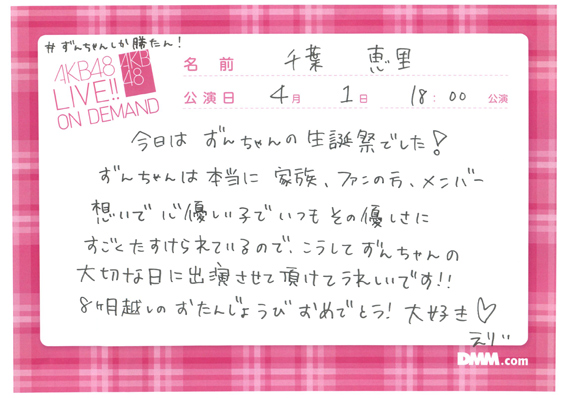 #ずんちゃんしか勝たん!
AKB48
LIVE!!
ON DEMAND
AKB
48
名前 千葉 恵里
公演日 4月 1日 18:00 公演
今日は ずんちゃんの 生誕祭でした!
ずんちゃんは 本当に 家族、ファンの方、メンバー
想いで 心優しい子で いつも その優しさに
すごくたすけられているので、こうして ずんちゃんの
大切な日に出演させて頂けてうれしいです!!
8ヶ月越しの おたんじょうび おめでとう! 大好き♡
えりい
DMM.com